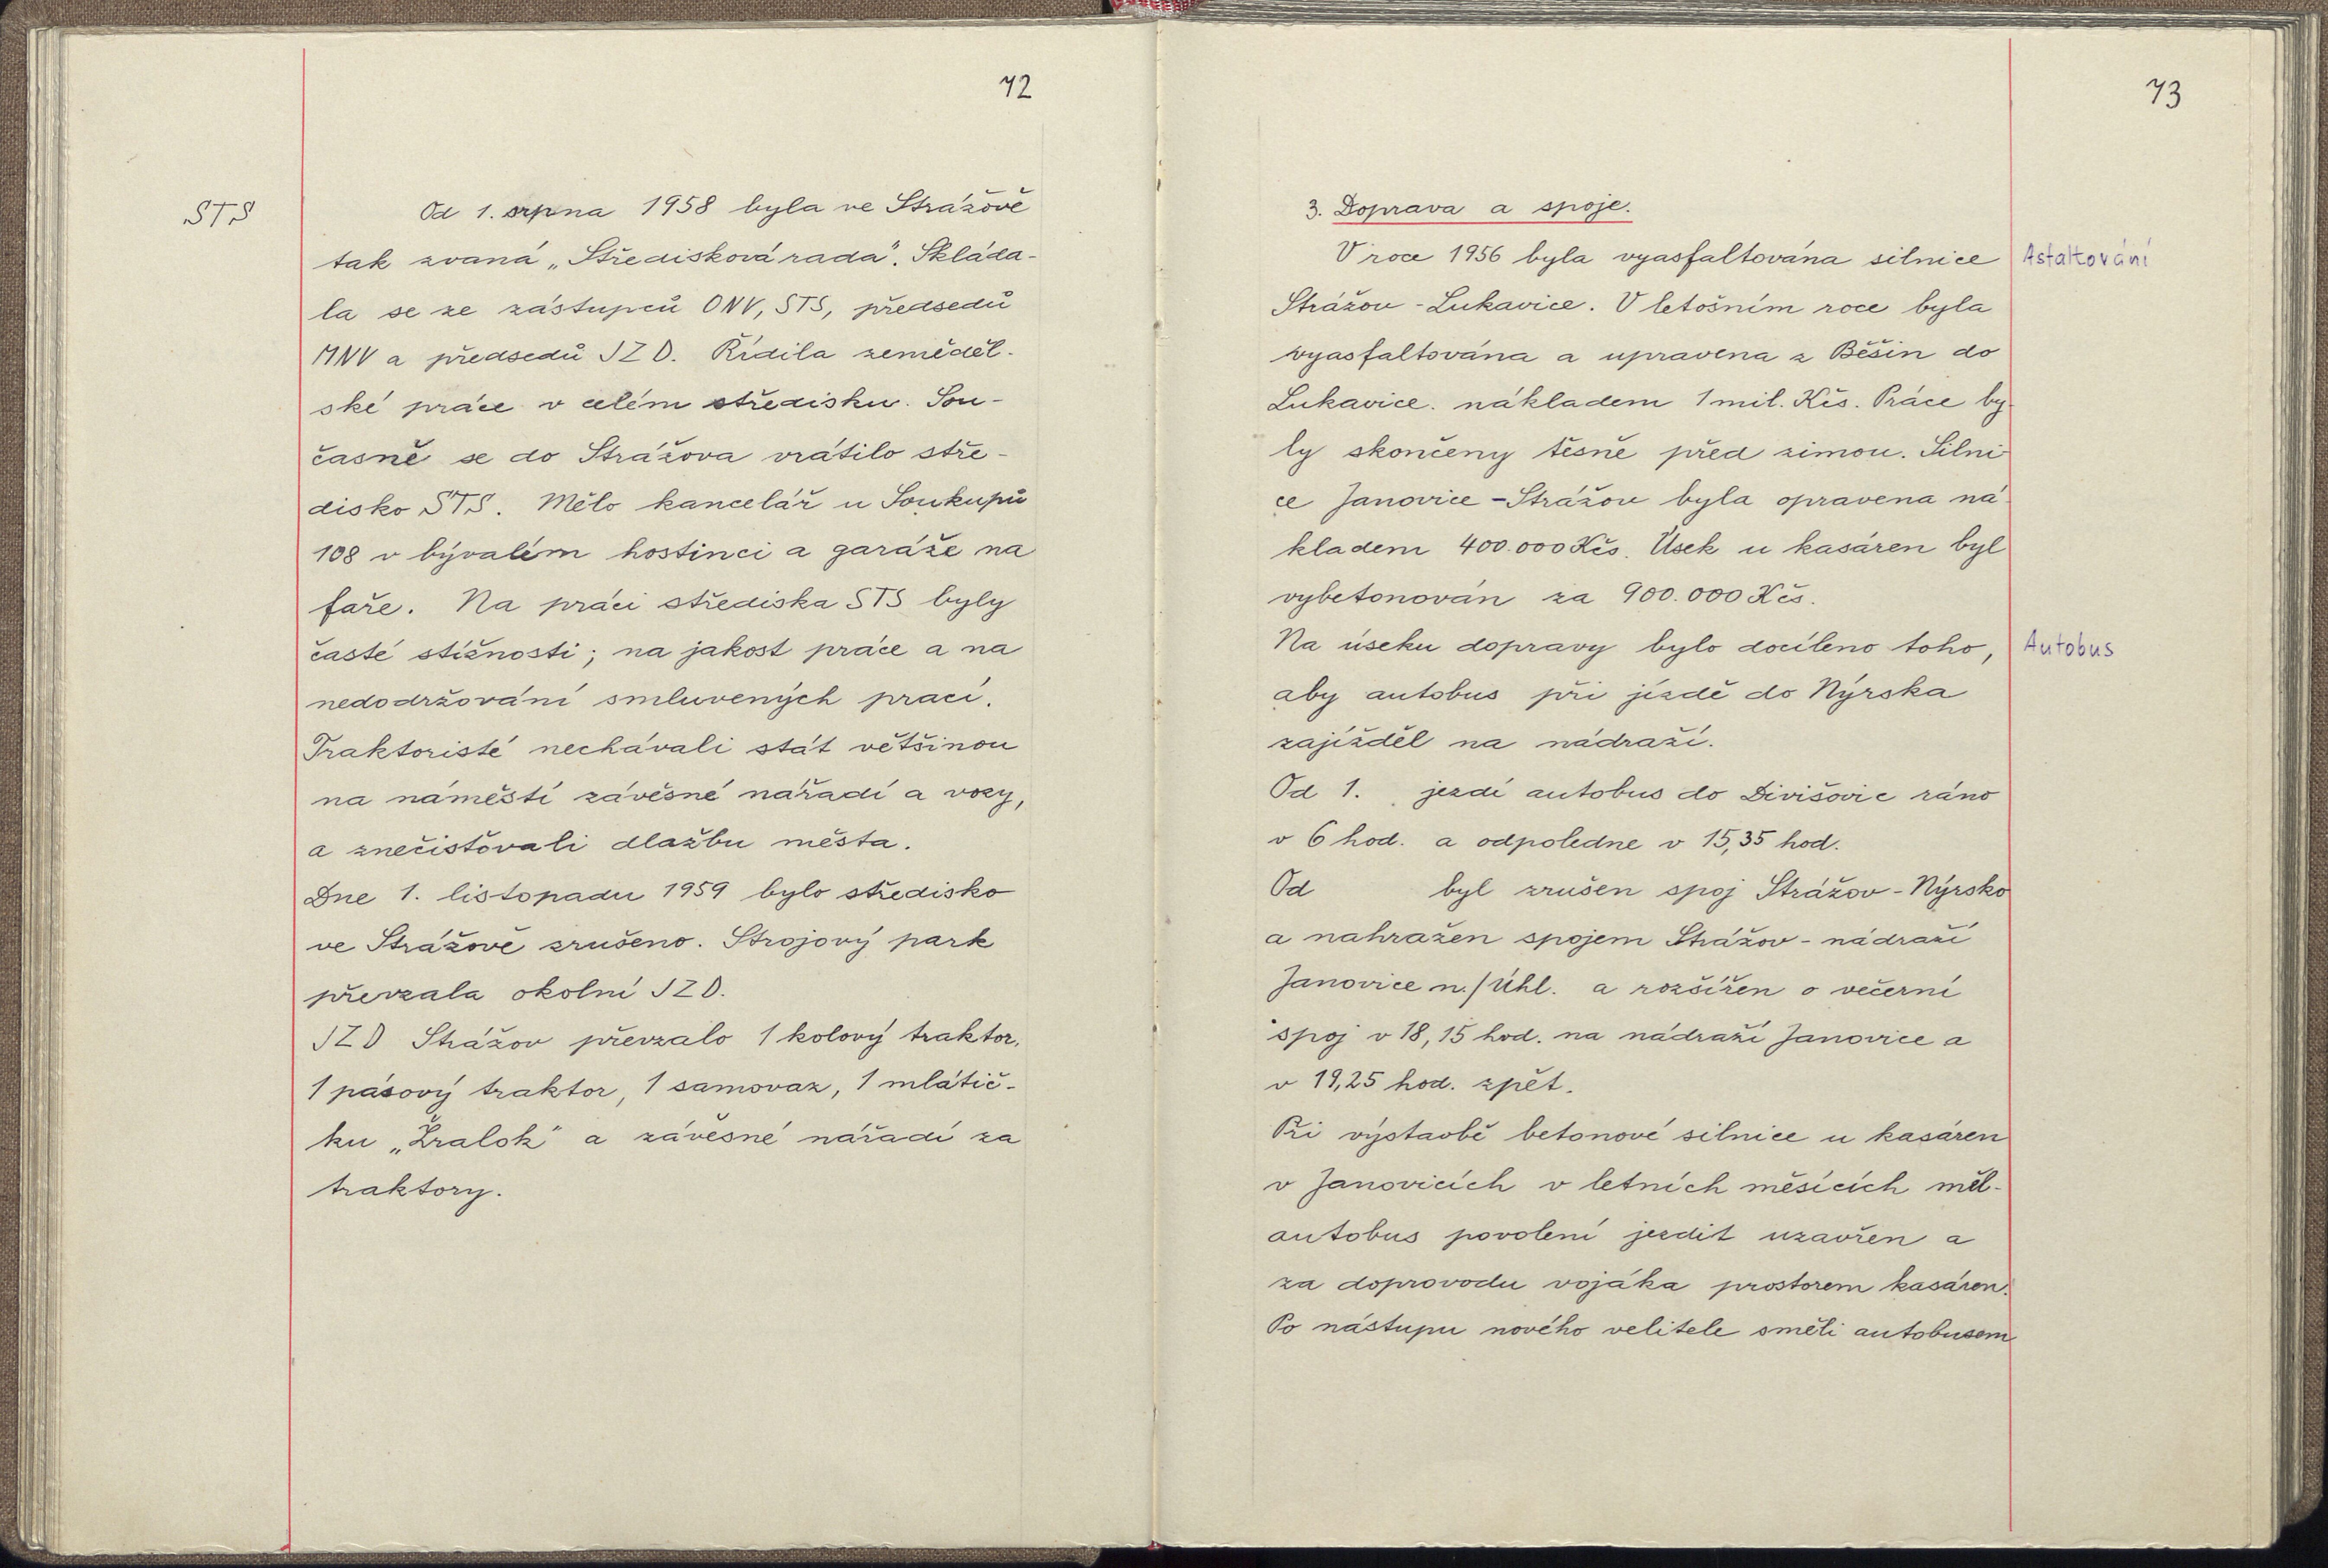 72
STS
Od 1. srpna 1958 byla ve Strážově
tak zvaná „Středisková rada". Skláda-
la se ze zástupců ONV, STS, předsedů
MNV a předsedů JZD. Řídila zeměděl-
ské práce v celém středisku. Sou-
časně se do Strážova vrátilo stře-
disko STS. Mělo kancelář u Soukupů
108 v bývalém hostinci a garáže na
faře. Na práci střediska STS byly
časté stížnosti; na jakost práce a na
nedodržování smluvených prací.
Traktoristé nechávali stát většinou
na náměstí závěsné nářadí a vozy,
a znečistovali dlažbu města.
Dne 1. listopadu 1959 bylo středisko
ve Strážově zrušeno. Strojový park
převzala okolní JZD.
JZD Strážov převzalo 1 kolový traktor,
1 pásový traktor, 1 samovaz, 1 mlátič-
ku „Žralok" a závěsné nářadí za
traktory.
73
3. Doprava a spoje.
V roce 1956 byla vyasfaltována silnice
Asfaltování
Strážov - Lukavice. V letošním roce byla
vyasfaltována a upravena z Běšin do
Lukavice. nákladem 1 mil. Kčs. Práce by-
ly skončeny těsně před zimou. Silni-
ce Janovice - Strážov byla opravena ná-
kladem 400.000 Kčs. Úsek u kasáren byl
vybetonován za 900.000 Kčs.
Na úseku dopravy bylo docíleno toho,
Autobus
aby autobus při jízdě do Nýrska
zajížděl na nádraží.
Od 1. jezdí autobus do Divišovic ráno
v 6 hod. a odpoledne v 15,35 hod.
Od byl zrušen spoj Strážov - Nýrsko
a nahražen spojem Strážov - nádraží
Janovice n./Úhl. a rozšířen o večerní
spoj v 18,15 hod. na nádraží Janovice a
v 19,25 hod. zpět.
Při výstavbě betonové silnice u kasáren
v Janovicích v letních měsících měl
autobus povolení jezdit uzavřen a
za doprovodu vojáka prostorem kasáren.
Po nástupu nového velitele směli autobusem